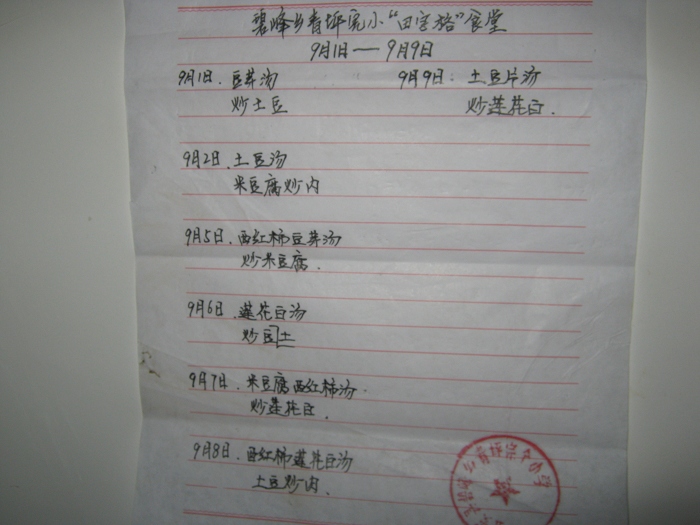 碧峰乡青坪完小“田字格”食堂
9月1日——9月9日
9月1日. 豆芽汤
炒土豆
9月2日. 土豆汤
米豆腐炒肉
9月5日. 西红柿豆芽汤
炒米豆腐.
9月6日. 莲花白汤
炒豆土
9月7日. 米豆腐西红柿汤.
炒莲花白.
9月8日. 西红柿莲花白汤
土豆炒肉.
9月9日. 土豆片汤
炒莲花白.